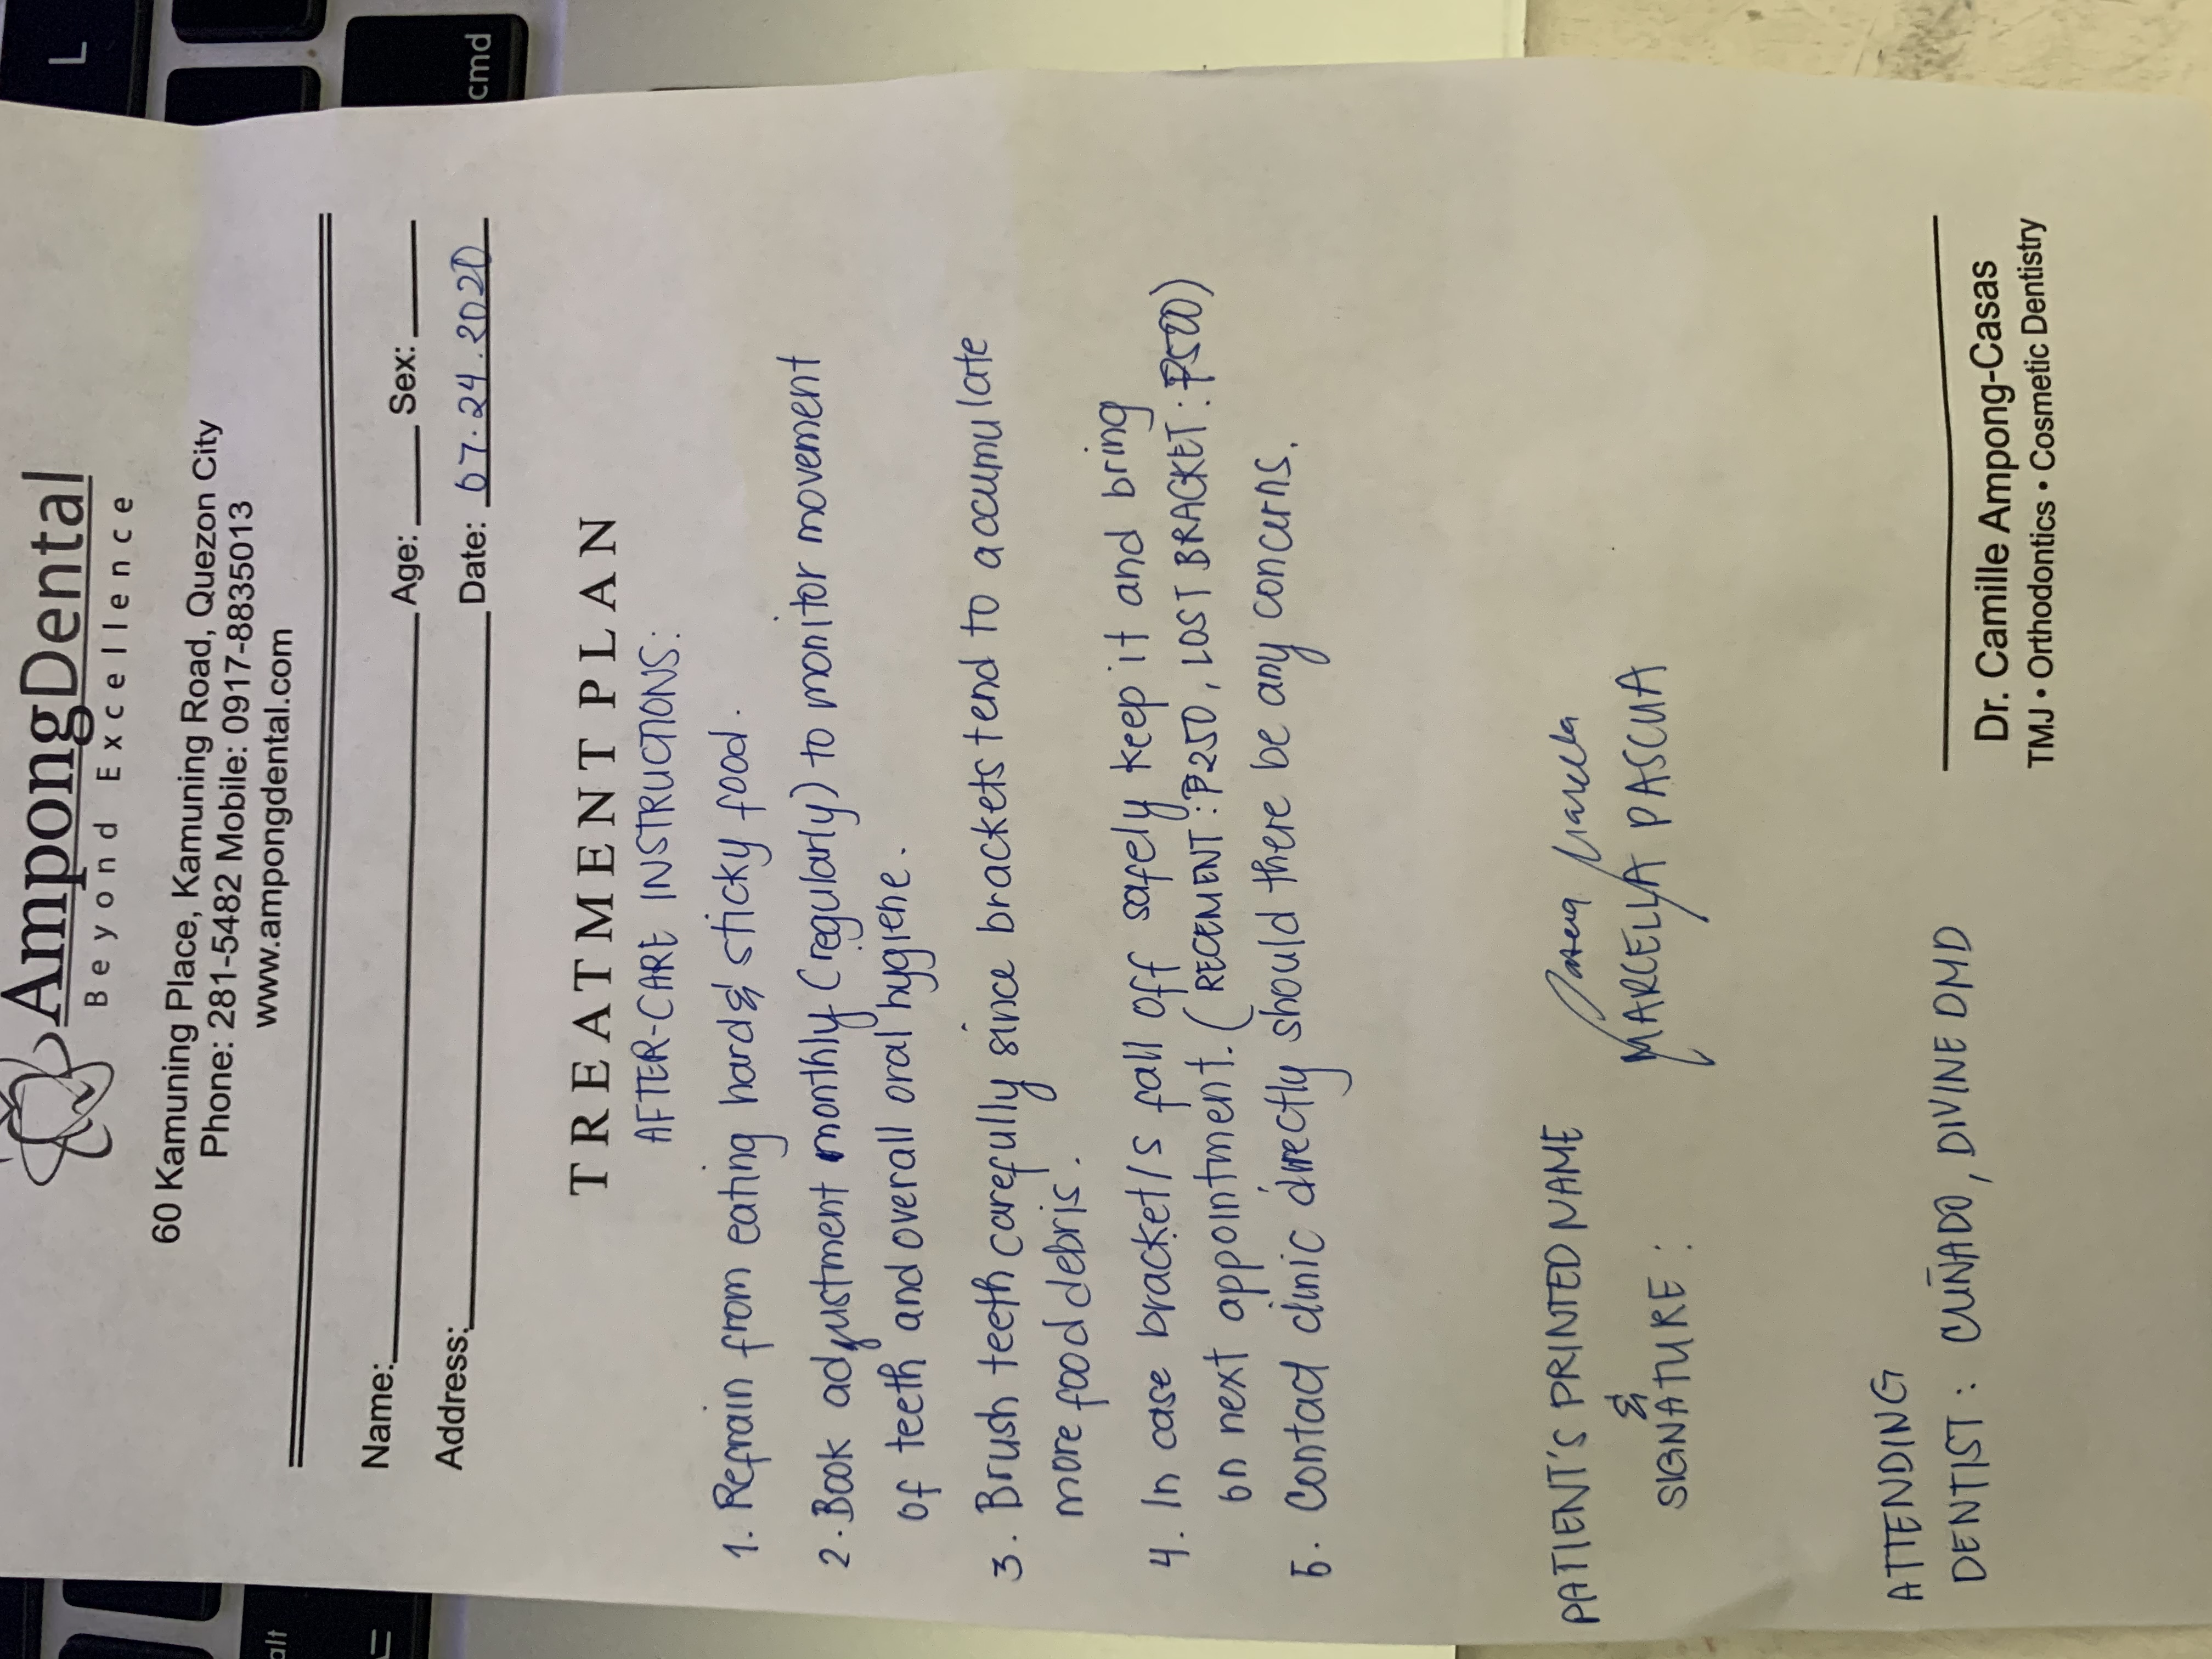 AmpongDental
Beyond Excellence
60 Kamuning Place, Kamuning Road, Quezon City
Phone: 281-5482 Mobile: 0917-8835013
www.ampongdental.com
Name: Age: Sex:
Address: Date: 07.24.2020
TREATMENT PLAN
AFTER-CARE INSTRUCTIONS:
1. Refrain from eating hard & sticky food.
2. Book adjustment monthly (regularly) to monitor movement
of teeth and overall oral hygiene.
3. Brush teeth carefully since brackets tend to accumulate
more food debris.
4. In case bracket/s fall off safely keep it and bring
on next appointment. (RECEMENT: ₱250, LOST BRACKET: ₱500)
5. Contact clinic directly should there be any concerns.
PATIENT'S PRINTED NAME
&
SIGNATURE: MARCELLA PASCUA
ATTENDING
DENTIST: CUÑADO, DIVINE DMD
Dr. Camille Ampong-Casas
TMJ • Orthodontics • Cosmetic Dentistry
alt
L
cmd